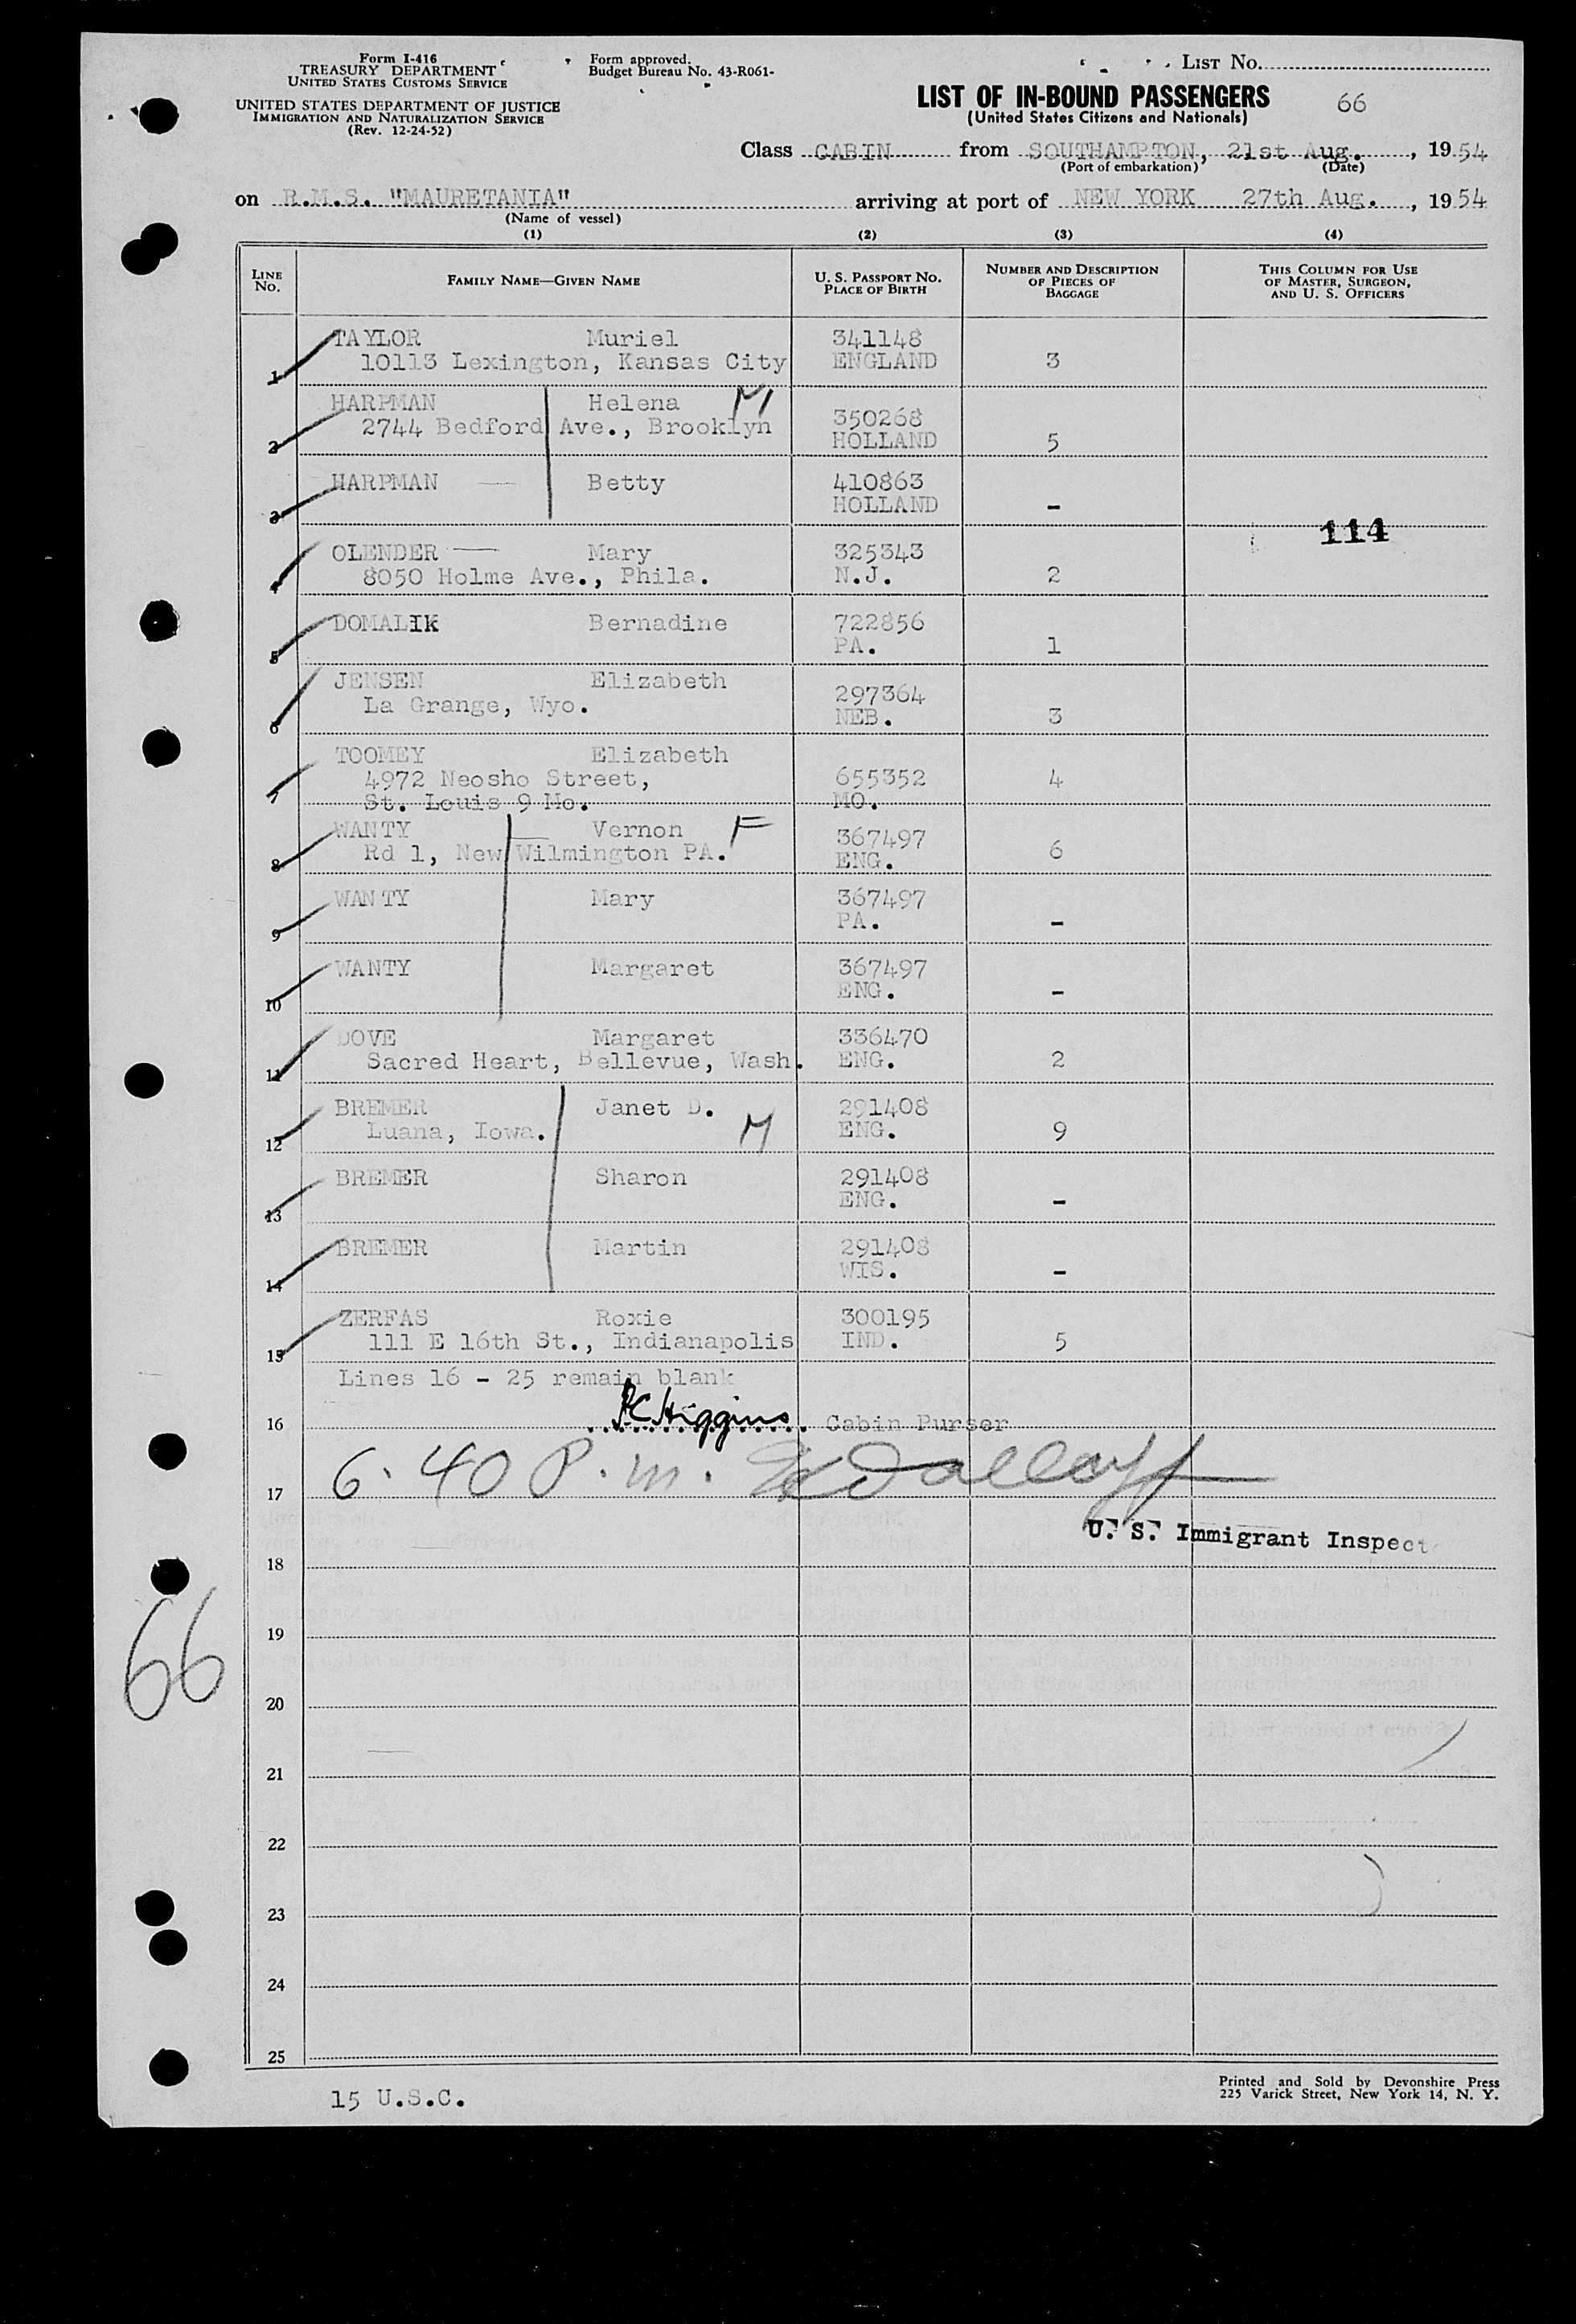 Form I-416
TREASURY DEPARTMENT
UNITED STATES CUSTOMS SERVICE
UNITED STATES DEPARTMENT OF JUSTICE
IMMIGRATION AND NATURALIZATION SERVICE
(Rev. 12-24-52)
Form approved.
Budget Bureau No. 43-R061-
LIST No.
LIST OF IN-BOUND PASSENGERS 66
(United States Citizens and Nationals)
Class CABIN from SOUTHAMPTON, 21st Aug., 1954
(Port of embarkation) (Date)
on R.M.S. "MAURETANIA" arriving at port of NEW YORK 27th Aug., 1954
(Name of vessel)
(1) (2) (3) (4)
LINE No. FAMILY NAME—GIVEN NAME U. S. PASSPORT No. PLACE OF BIRTH NUMBER AND DESCRIPTION OF PIECES OF BAGGAGE THIS COLUMN FOR USE OF MASTER, SURGEON, AND U. S. OFFICERS
TAYLOR Muriel 341148
1 10113 Lexington, Kansas City ENGLAND 3
HARPMAN Helena M 350268
2 2744 Bedford Ave., Brooklyn HOLLAND 5
HARPMAN Betty 410863
3 HOLLAND -
114
OLENDER Mary 325343
4 8050 Holme Ave., Phila. N.J. 2
DOMALIK Bernadine 722856
5 PA. 1
JENSEN Elizabeth 297364
6 La Grange, Wyo. NEB. 3
TOOMEY Elizabeth
4972 Neosho Street, 655352 4
7 St. Louis 9 Mo. MO.
WANTY Vernon F 367497
8 Rd 1, New Wilmington PA. ENG. 6
WANTY Mary 367497
9 PA. -
WANTY Margaret 367497
10 ENG. -
DOVE Margaret 336470
11 Sacred Heart, Bellevue, Wash. ENG. 2
BREMER Janet D. 291408
12 Luana, Iowa. M ENG. 9
BREMER Sharon 291408
13 ENG. -
BREMER Martin 291408
14 WIS. -
ZERFAS Roxie 300195
15 111 E 16th St., Indianapolis IND. 5
Lines 16 - 25 remain blank
16 Higgins Cabin Purser
17 6.40 P.m.
U. S. Immigrant Inspect
18
19
66
20
21
22
23
24
25
15 U.S.C.
Printed and Sold by Devonshire Press
225 Varick Street, New York 14, N. Y.